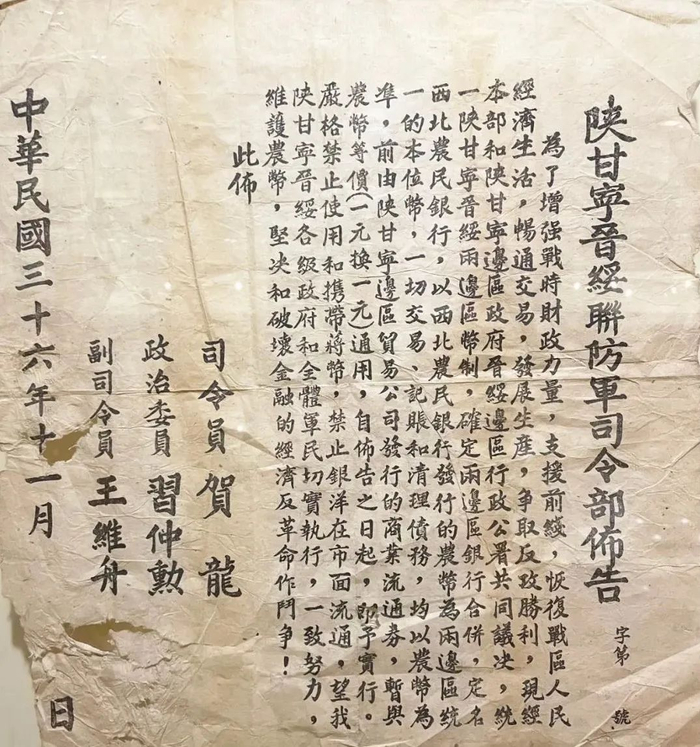 陝甘寧晉綏聯防軍司令部佈告
字第 號
為了增强戰時財政力量,支援前綫,恢復戰區人民
經濟生活,暢通交易,發展生產,爭取反攻勝利,現經
本部和陝甘寧邊區政府晉綏邊區行政公署共同議决,統
一陝甘寧晉綏兩邊區幣制,確定兩邊區銀行合併,定名
西北農民銀行,以西北農民銀行發行的農幣為兩邊區統
一的本位幣,一切交易、記賬和清理債務,均以農幣為
準,前由陝甘寧邊區貿易公司發行的商業流通券,暫與
農幣等價(一元換一元)通用,自佈告之日起,即予實行。
嚴格禁止使用和携帶蔣幣,禁止銀洋在市面流通,望我
陝甘寧晉綏各級政府和全體軍民切實執行,一致努力,
維護農幣,堅决和破壞金融的經濟反革命作鬥爭!
此佈
司令員 賀龍
政治委員 習仲勳
副司令員 王維舟
中華民國三十六年十一月 日